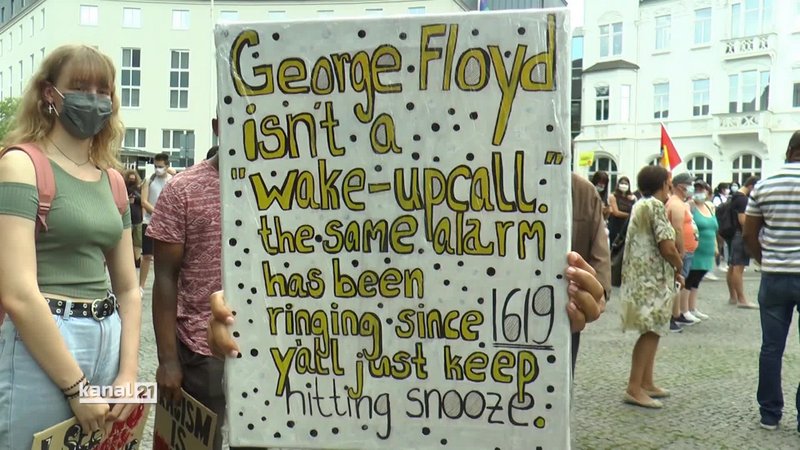 George Floyd
isn't a
"wake-upcall."
the same alarm
has been
ringing since 1619
y'all just keep
hitting snooze.
kanal 21
IS